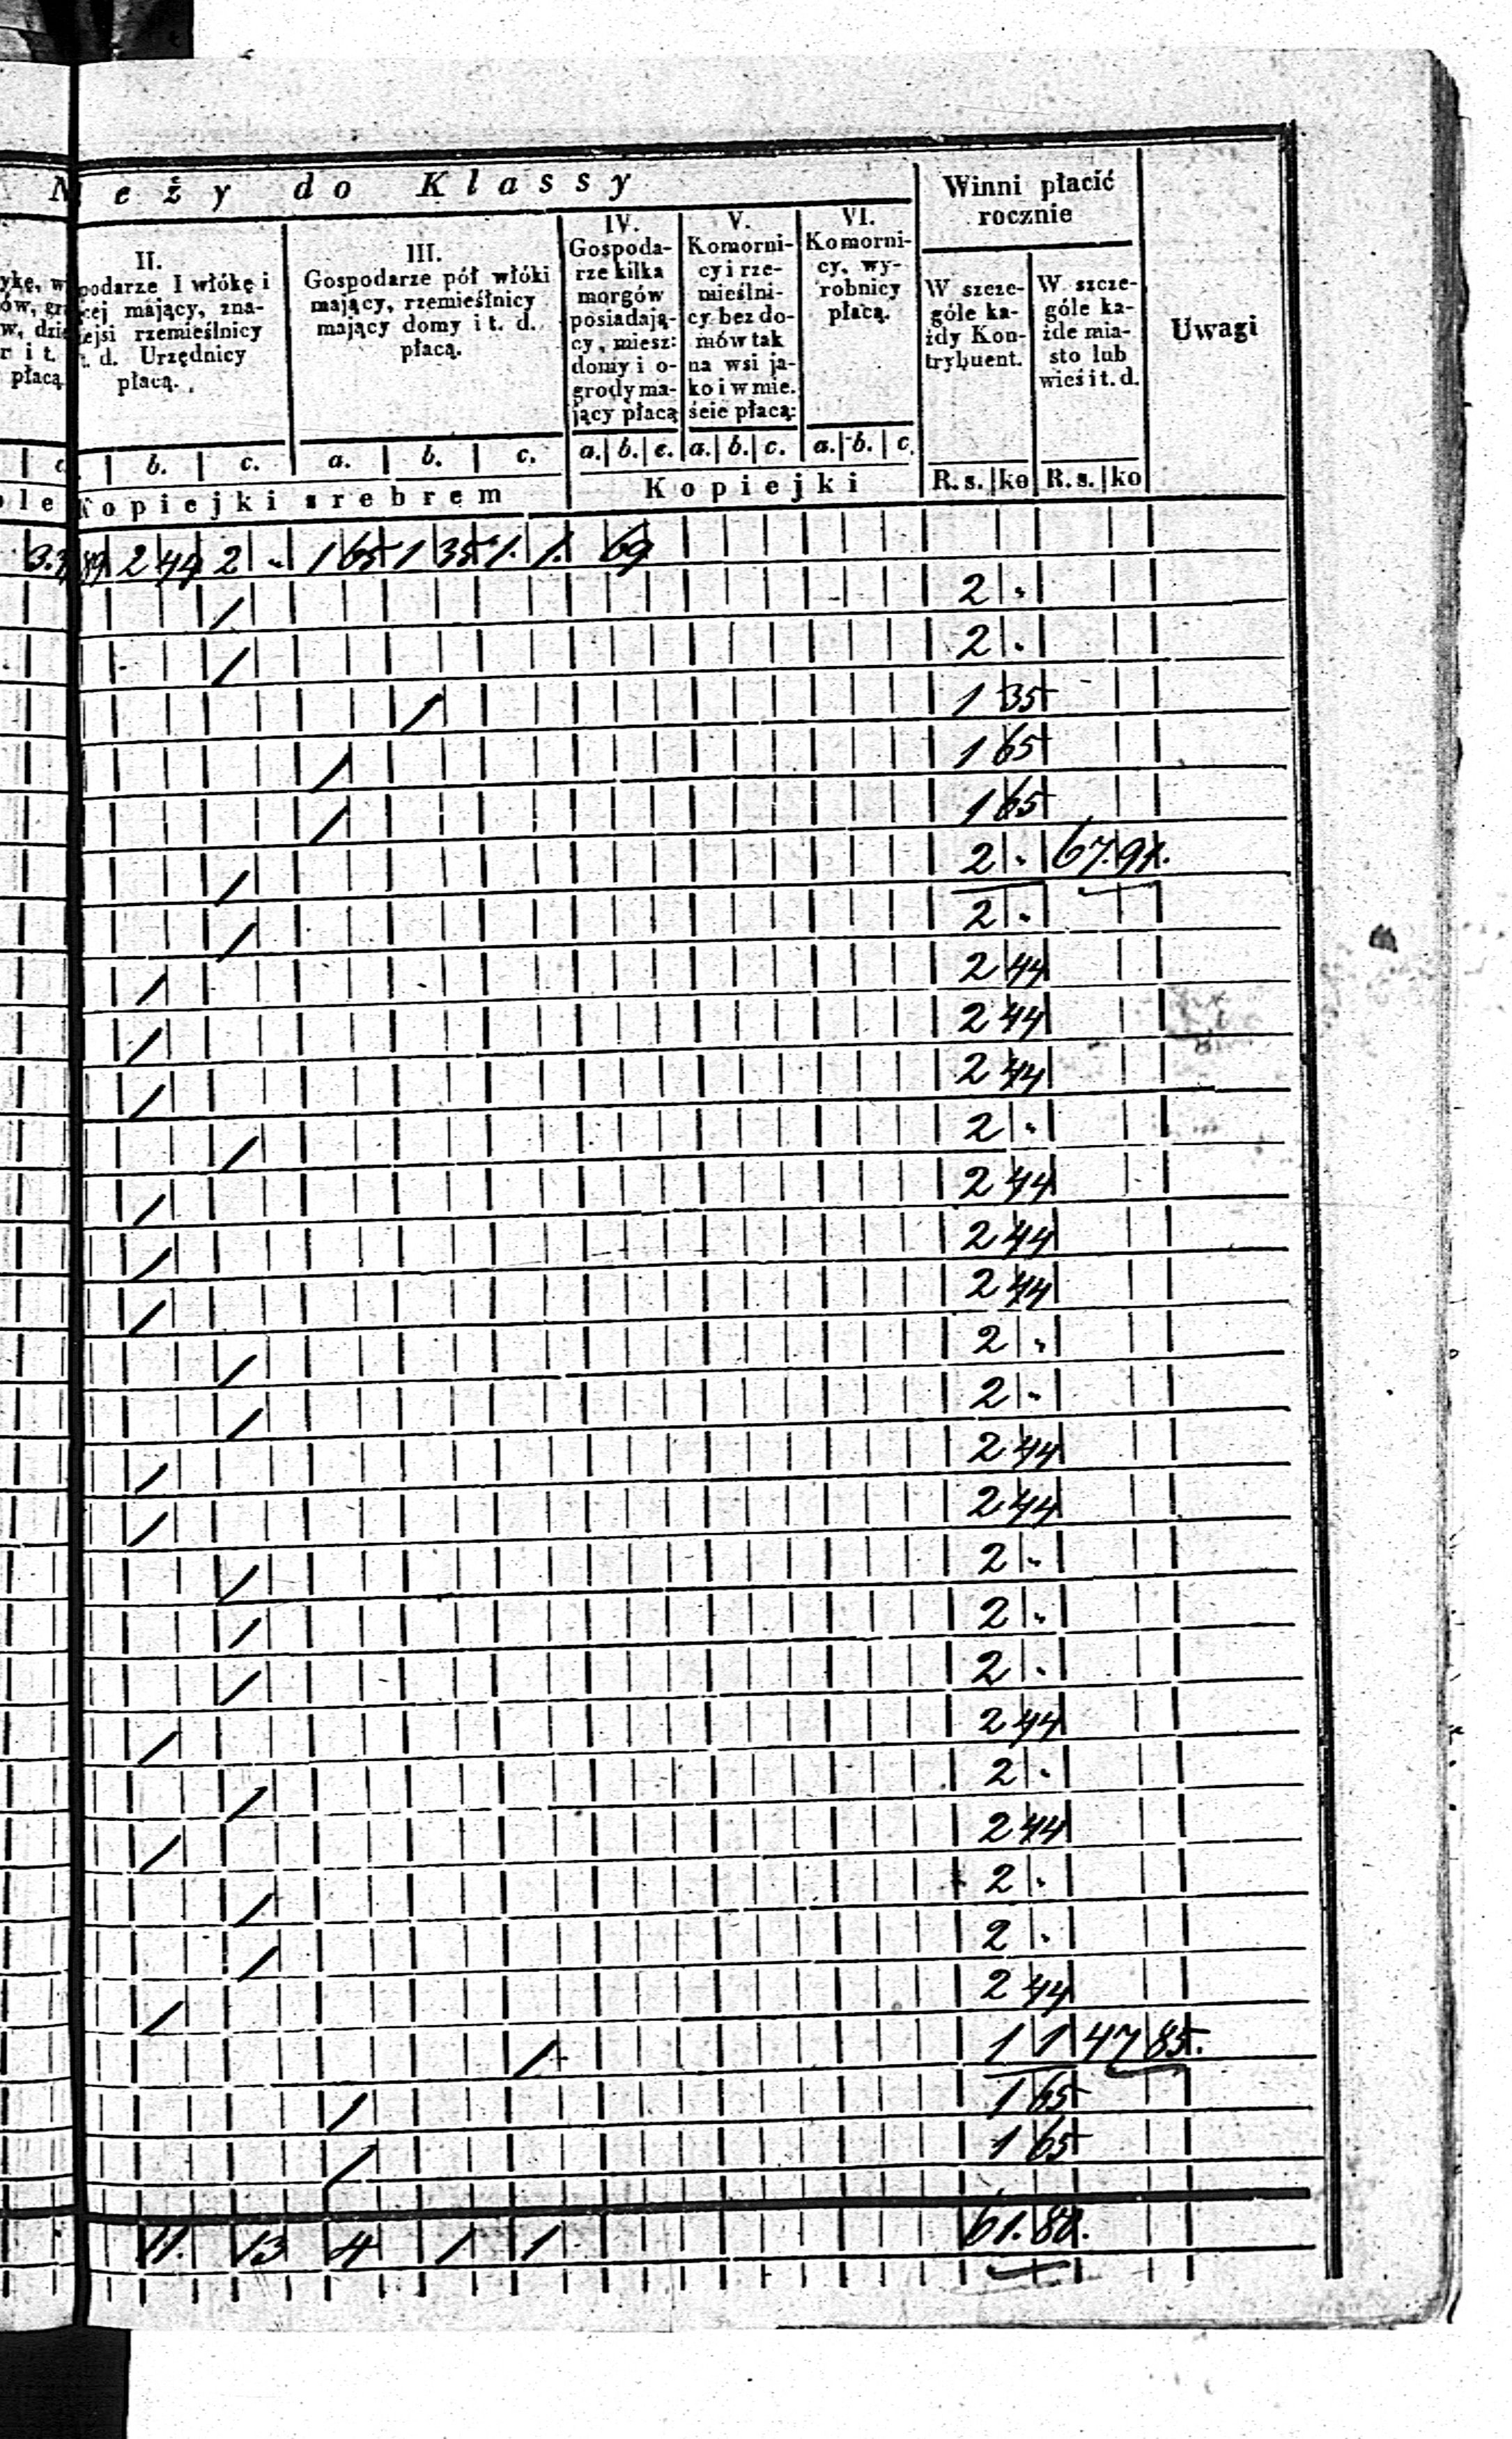 N eży do Klassy
Winni płacić rocznie
Uwagi
II.
podarze I włókę i
cej mający, zna-
ejsi rzemieślnicy
t. d. Urzędnicy
płacą.
III.
Gospodarze pół włóki
mający, rzemieślnicy
mający domy i t. d.
płacą.
IV.
Gospoda-
rze kilka
morgów
posiadają-
cy, miesz:
domy i o-
grody ma-
jący płacą
V.
Komorni-
cy i rze-
mieślni-
cy bez do-
mów tak
na wsi ja-
ko i w mie.
ście płacą:
VI.
Komorni-
cy, wy-
robnicy
płacą.
W szcze-
góle ka-
żdy Kon-
trybuent.
W szcze-
góle ka-
żde mia-
sto lub
wieś i t. d.
ykę, w
ów, gr
w, dzie
r i t.
płacą
c. b. c. a. b. c. a. b. c. a. b. c. a. b. c. R. s. ko R. s. ko
ole Kopiejki srebrem Kopiejki
89 2 44 2 . 1 65 1 35 1. 1. 69
/ 2 .
/ 2 .
/ 1 35
/ 1 65
/ 1 65
/ 2 . 67.91.
/ 2 .
/ 2 44
/ 2 44
/ 2 44
/ 2 .
/ 2 44
/ 2 44
/ 2 44
/ 2 .
/ 2 .
/ 2 44
/ 2 44
/ 2 .
/ 2 .
/ 2 .
/ 2 44
/ 2 .
/ 2 44
/ 2 .
/ 2 .
/ 2 44
/ 1 1 47 85.
/ 1 65
/ 1 65
11. 13 4 1 1 61.88.